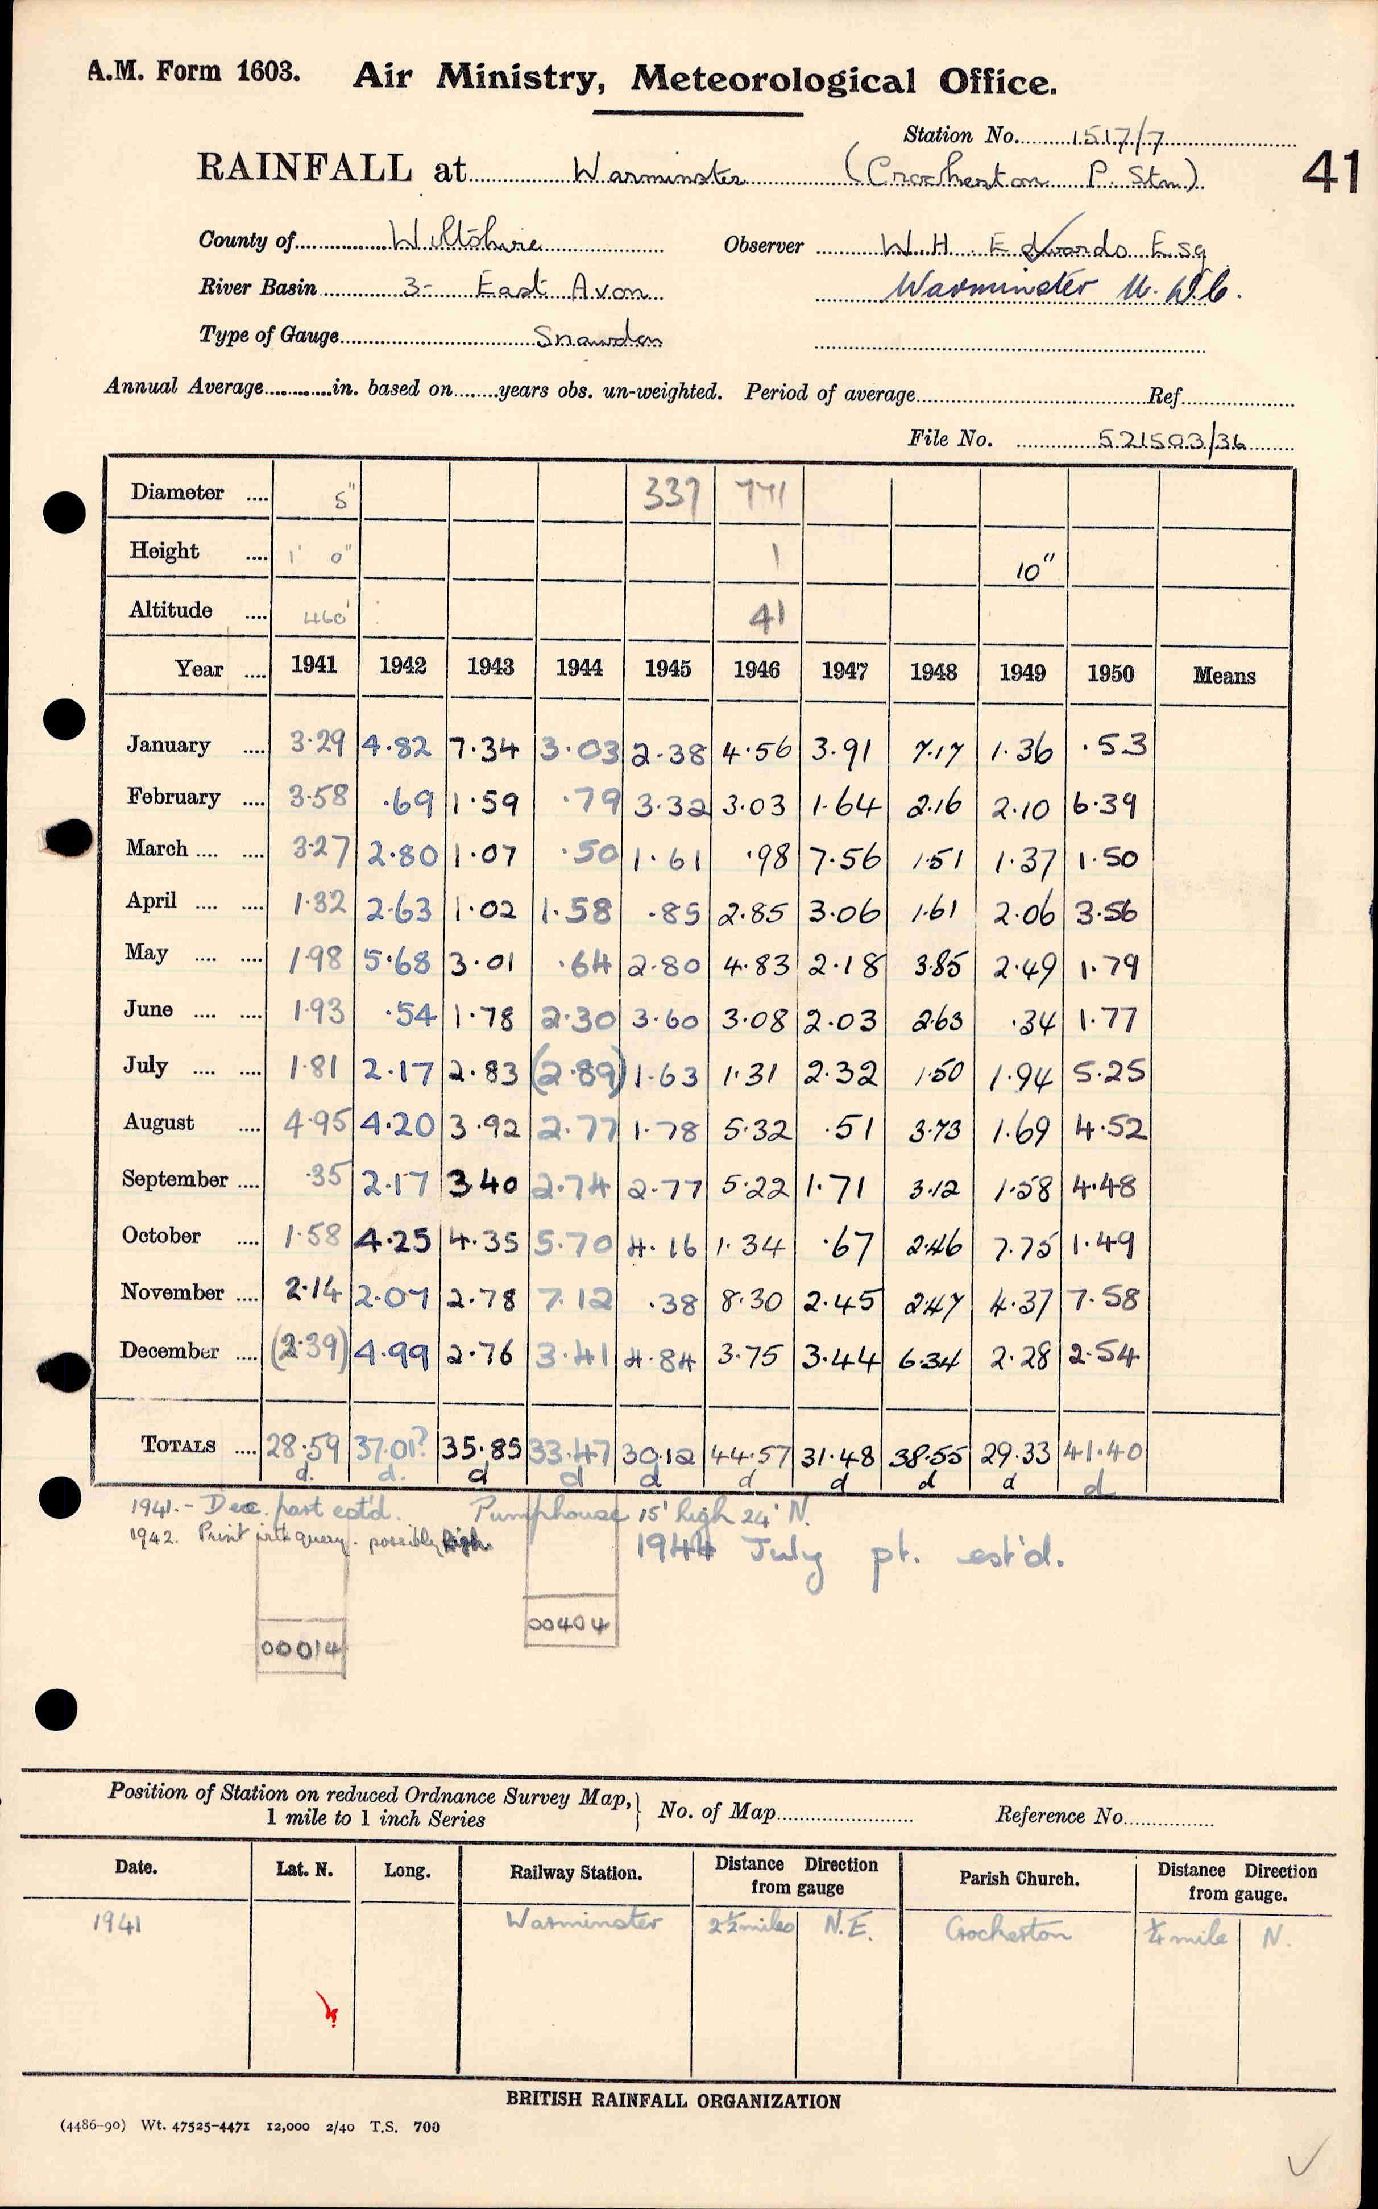 A.M. Form 1603. Air Ministry, Meteorological Office.
Station No. 1517/7
RAINFALL at Warminster (Crockerton P. Stn.) 41
County of Wiltshire Observer W.H. Edwards Esq
River Basin 3- East Avon Warminster U.D.C.
Type of Gauge Snowdon
Annual Average in. based on years obs. un-weighted. Period of average Ref
File No. 521503/36
Diameter 5" 337 771
Height 1' 0" 1 10"
Altitude 460' 41
Year 1941 1942 1943 1944 1945 1946 1947 1948 1949 1950 Means
January 3.29 4.82 7.34 3.03 2.38 4.56 3.91 7.17 1.36 .53
February 3.58 .69 1.59 .79 3.32 3.03 1.64 2.16 2.10 6.39
March 3.27 2.80 1.07 .50 1.61 .98 7.56 1.51 1.37 1.50
April 1.32 2.63 1.02 1.58 .85 2.85 3.06 1.61 2.06 3.56
May 1.98 5.68 3.01 .64 2.80 4.83 2.18 3.85 2.49 1.79
June 1.93 .54 1.78 2.30 3.60 3.08 2.03 2.63 .34 1.77
July 1.81 2.17 2.83 (2.89) 1.63 1.31 2.32 1.50 1.94 5.25
August 4.95 4.20 3.92 2.77 1.78 5.32 .51 3.73 1.69 4.52
September .35 2.17 3.40 2.74 2.77 5.22 1.71 3.12 1.58 4.48
October 1.58 4.25 4.35 5.70 4.16 1.34 .67 2.46 7.75 1.49
November 2.14 2.07 2.78 7.12 .38 8.30 2.45 2.47 4.37 7.58
December (2.39) 4.99 2.76 3.41 4.84 3.75 3.44 6.34 2.28 2.54
TOTALS 28.59 37.01? 35.85 33.47 30.12 44.57 31.48 38.55 29.33 41.40
d. d. d d d d d d d d
1941.- Dec. part est'd. Pumphouse 15' high 24' N.
1942. Print with query. possibly high.
1944 July pt. est'd.
00404
00014
Position of Station on reduced Ordnance Survey Map, 1 mile to 1 inch Series No. of Map Reference No.
Date. Lat. N. Long. Railway Station. Distance Direction from gauge Parish Church. Distance Direction from gauge.
1941 Warminster 2½ miles N.E. Crockerton ¼ mile N.
BRITISH RAINFALL ORGANIZATION
(4486-90) Wt. 47525-4471 12,000 2/40 T.S. 700